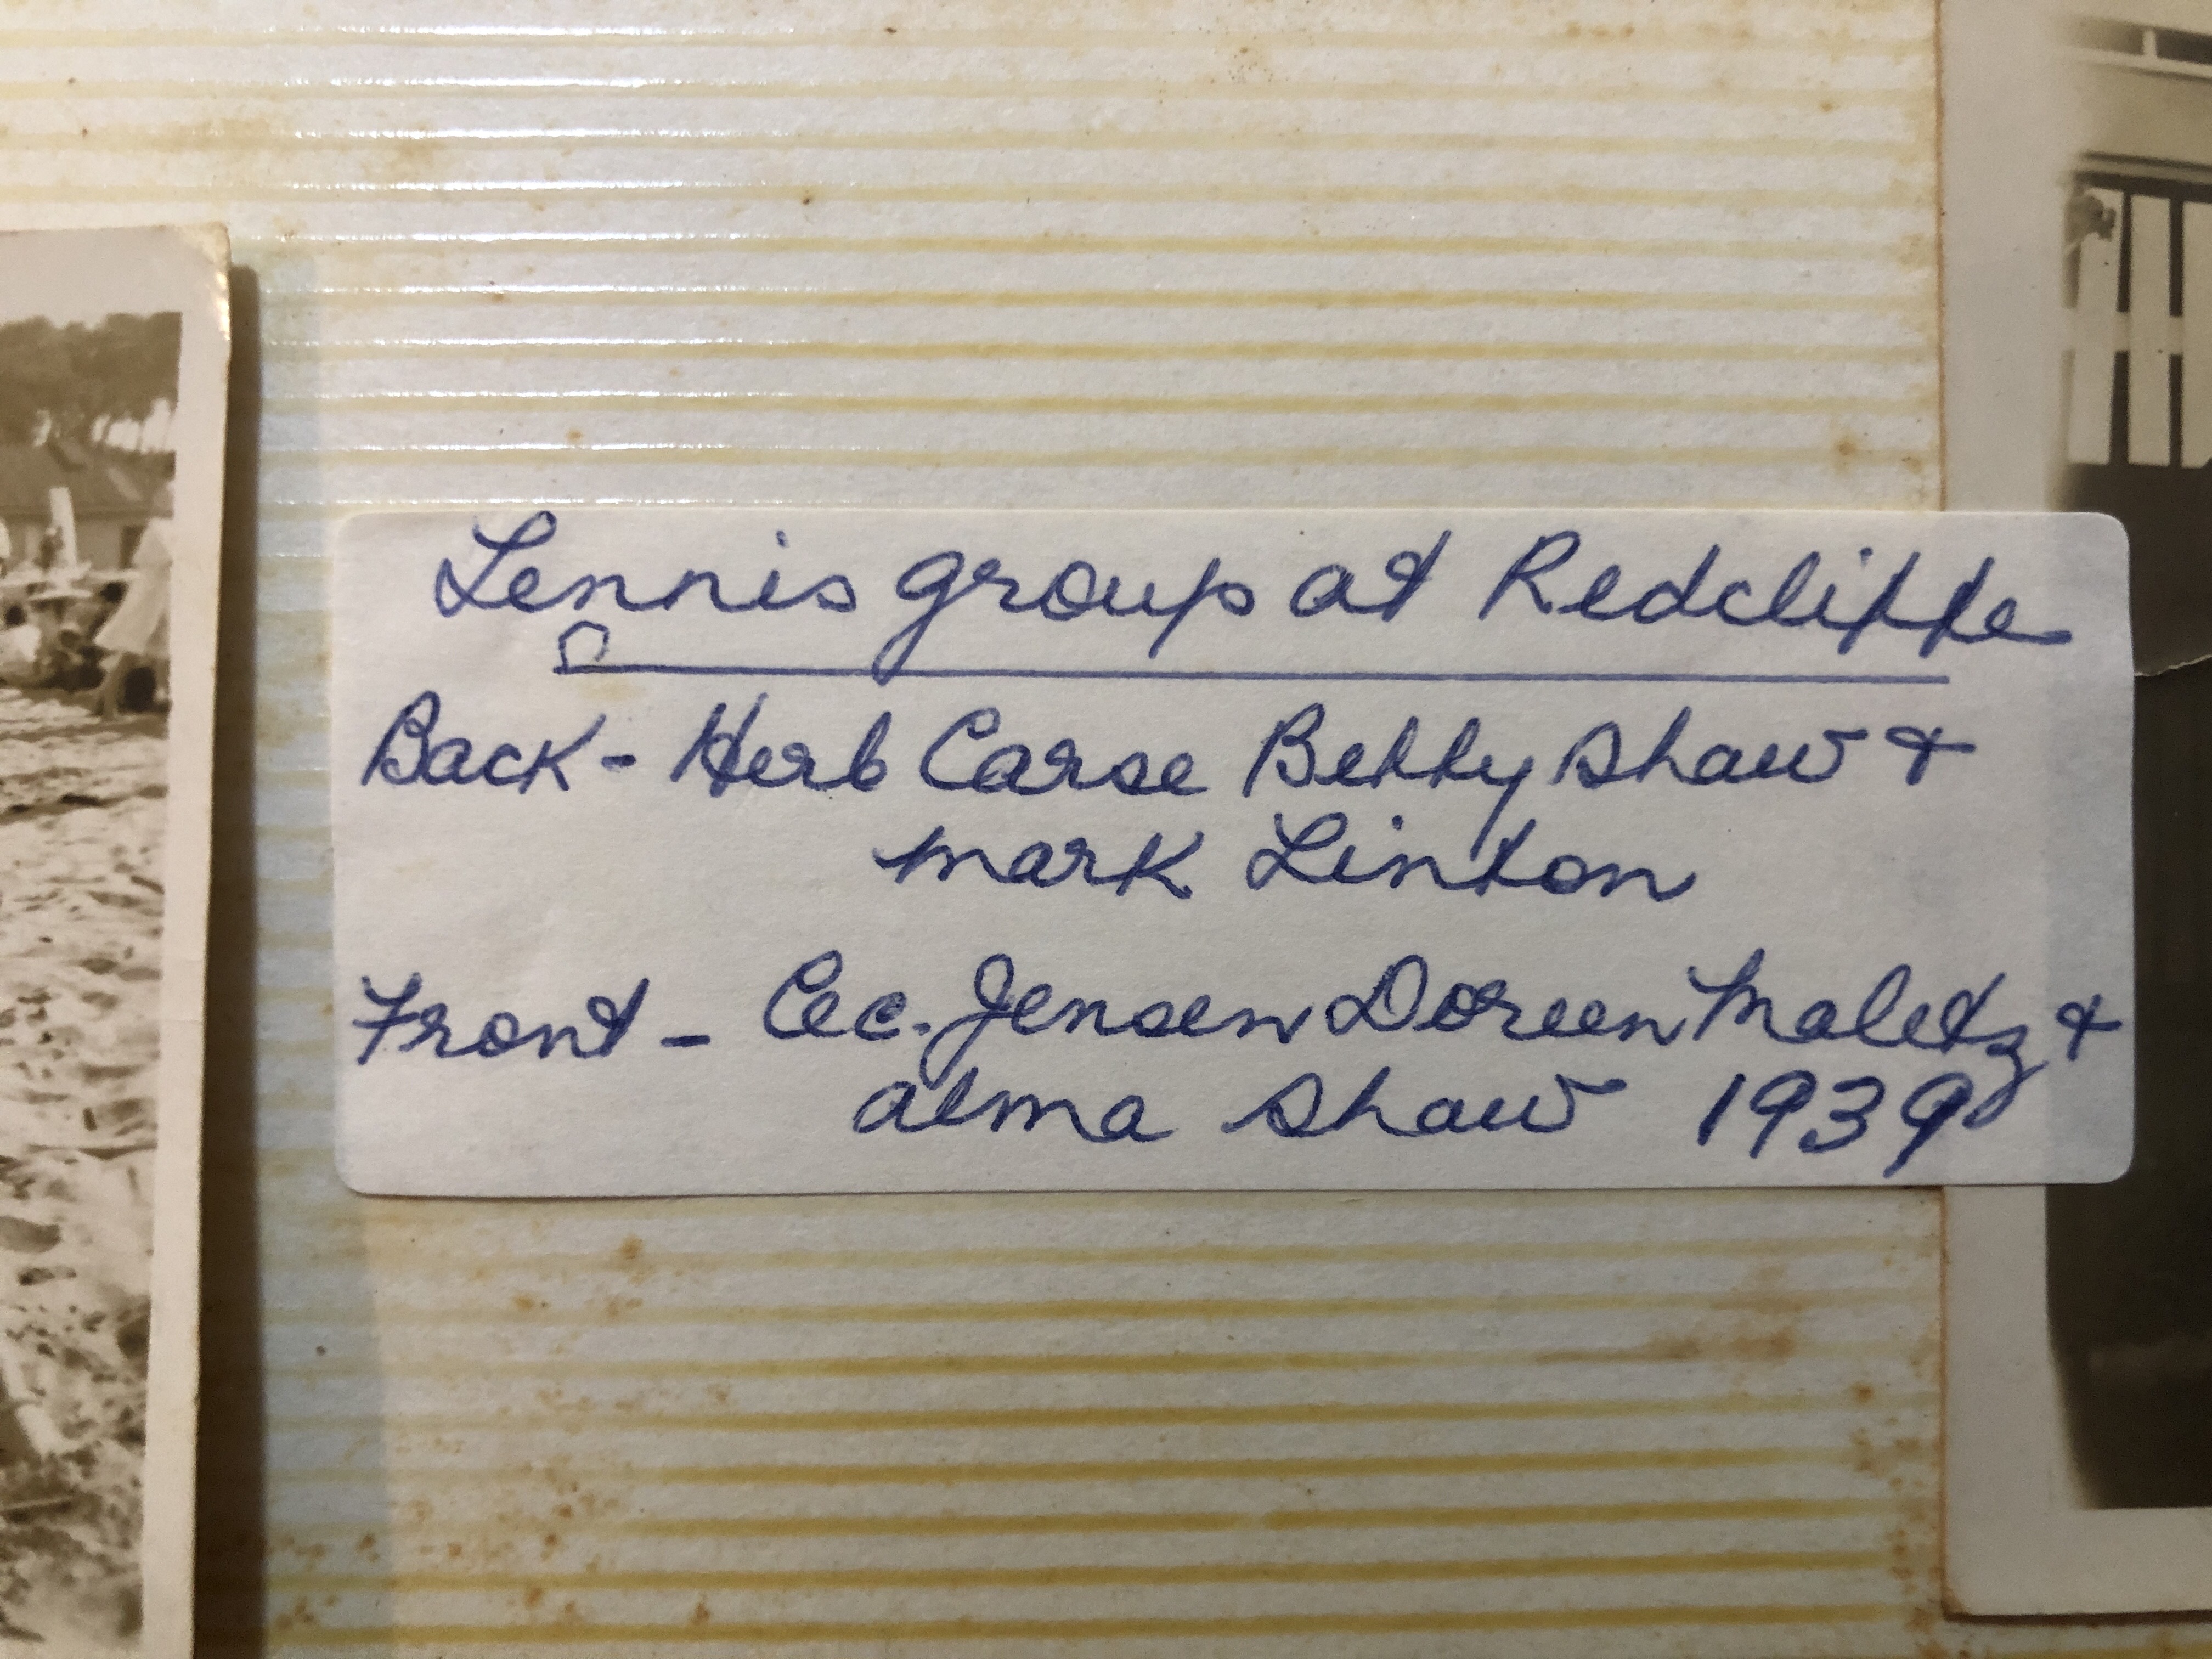 Tennis group at Redcliffe
Back - Herb Carse Betty Shaw &
Mark Linton
Front - Cec. Jensen Doreen Maletz &
Alma Shaw 1939